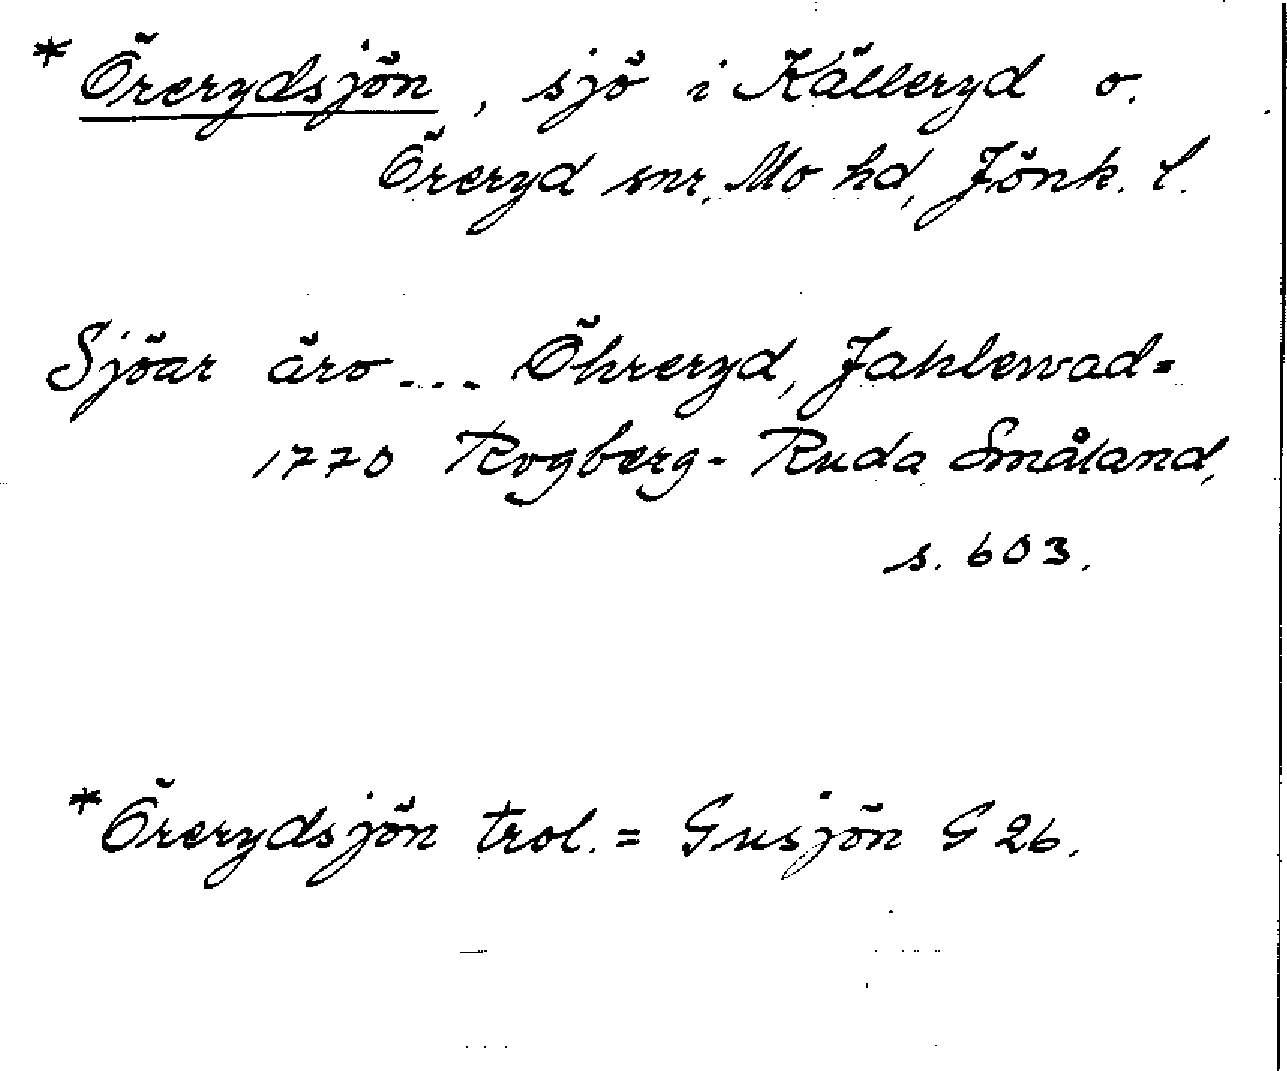 *Örerydsjön, sjö i Källeryd o.
Öreryd snr, Mo hd, Jönk. l.
Sjöar äro ... Öhreryd, Jahlewad-
1770 Rogberg-Ruda Småland,
s. 603.
*Örerydsjön trol. = Gusjön G 26.